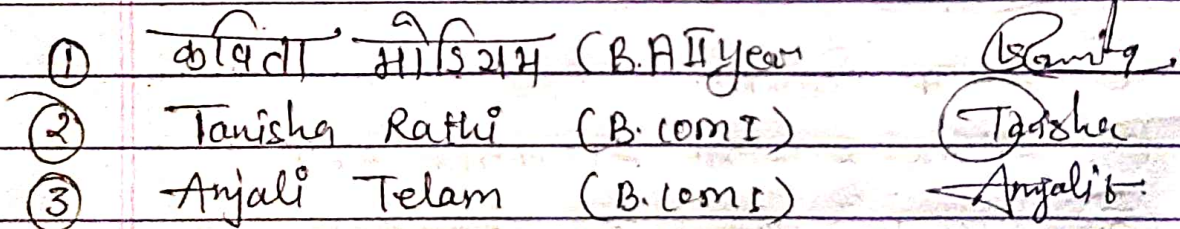 ① कविता मोडियम (B.A II year
② Tanisha Rathi (B. com I) Tanisha
③ Anjali Telam (B. com I) Anjali